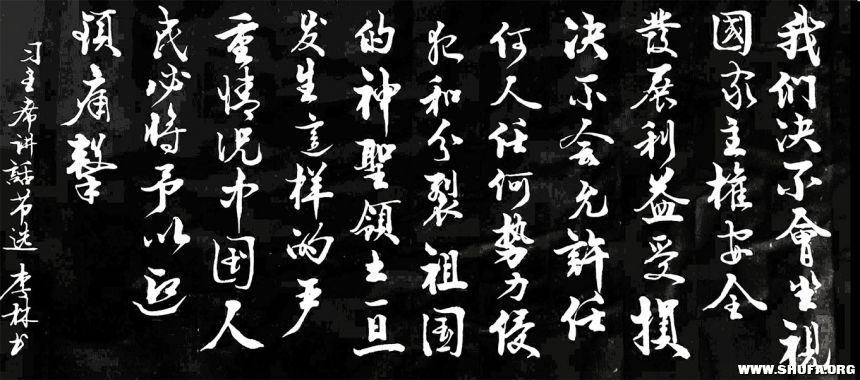 我们决不會坐視
國家主權安全
發展利益受損
决不会允許任
何人任何勢力侵
犯和分裂祖国
的神聖領土一旦
发生这样的严
重情况中国人
民必將予以迎
頭痛擊
习主席讲話节选 李林书
WWW.SHUFA.ORG